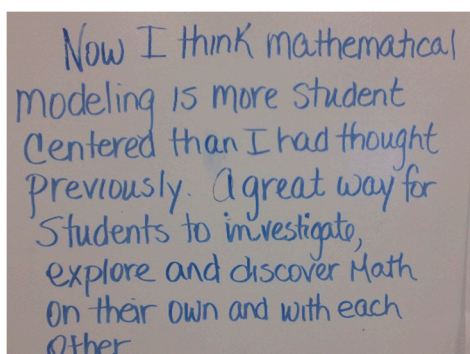 Now I think mathematical
modeling is more student
Centered than I had thought
previously. A great way for
Students to investigate,
explore and discover Math
on their own and with each
other